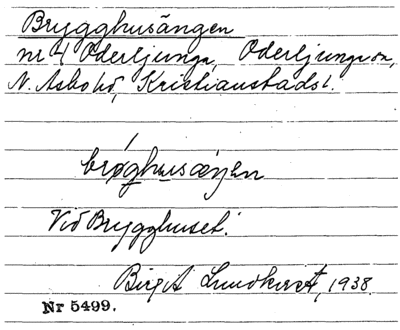 Brygghusängen
nr 4 Oderljunga, Oderljunga sn,
N. Åsbo hd, Kristianstads l.
brøghusæŋen
Vid Brygghuset.
Birgit Lundkvist, 1938
Nr 5499.